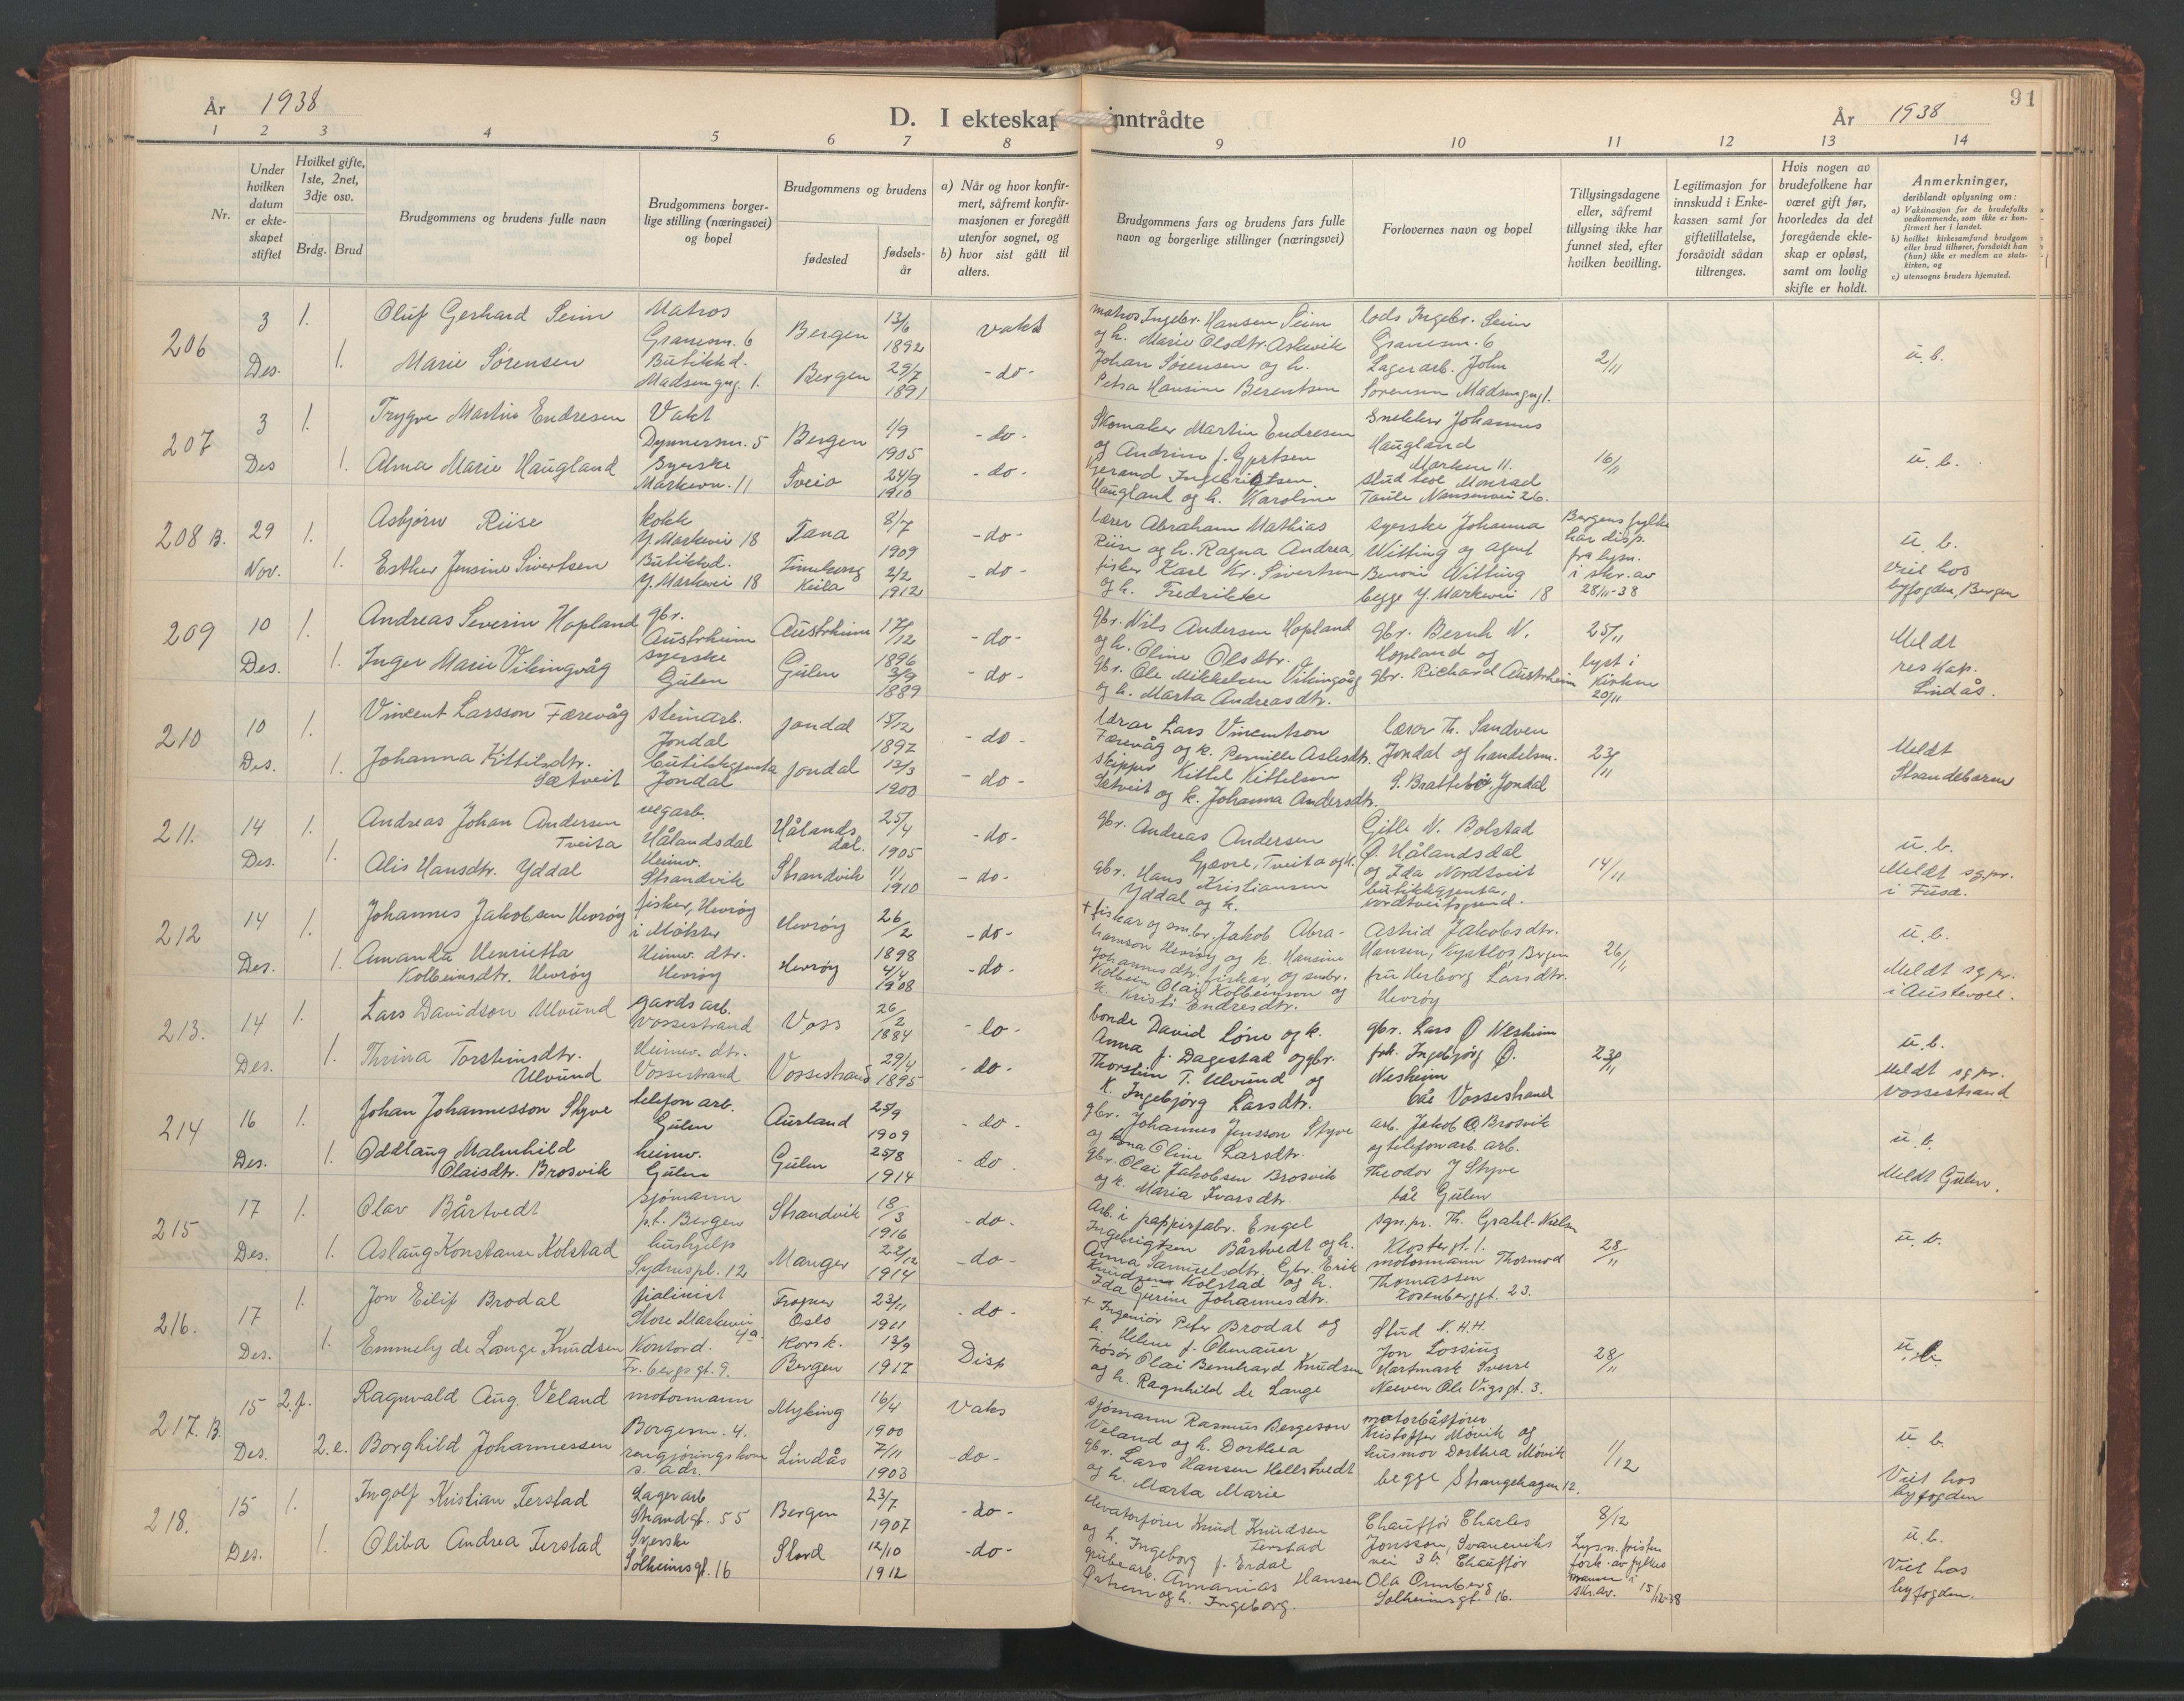 År 1938
D. I ekteskap inntrådte
År 1938
91
1 2 3 4 5 6 7 8 9 10 11 12 13 14
Nr.
Under hvilken datum er ekteskapet stiftet
Hvilket gifte, 1ste, 2net, 3dje osv.
Brdg. Brud
Brudgommens og brudens fulle navn
Brudgommens borgerlige stilling (næringsvei) og bopel
Brudgommens og brudens
fødested
fødselsår
a) Når og hvor konfirmert, såfremt konfirmasjonen er foregått utenfor sognet, og
b) hvor sist gått til alters.
Brudgommens fars og brudens fars fulle navn og borgerlige stillinger (næringsvei)
Forlovernes navn og bopel
Tillysingsdagene eller, såfremt tillysing ikke har funnet sted, efter hvilken bevilling.
Legitimasjon for innskudd i Enkekassen samt for giftetillatelse, forsåvidt sådan tiltrenges.
Hvis nogen av brudefolkene har været gift før, hvorledes da det foregående ekteskap er opløst, samt om lovlig skifte er holdt.
Anmerkninger, deriblandt oplysning om:
a) Vaksinasjon for de brudefolks vedkommende, som ikke er konfirmert her i landet.
b) hvilket kirkesamfund brudgom eller brud tilhører, forsåvidt han (hun) ikke er medlem av statskirken, og
c) utensogns bruders hjemsted.
206
3 Des.
1. Oluf Gerhard Seim
Matros
Granesm. 6
Bergen
13/6 1892
vaks
1. Marie Sørensen
Butikkd.
Madsengug. 1.
Bergen
29/7 1891
-do-
matros Ingebr. Hansen Seim
og h. Marie Olsdtr. Askevik
Johan Sørensen og h.
Petra Hansine Berentsen
lods Ingebr. Seim
Granesm. 6
Lagerarb. John
Sørensen Madsengug 1.
2/11
u. b.
207
3 Des
1. Trygve Martin Endresen
Vakt
Dynnersm. 5
Bergen
1/9 1905
-do-
1. Alma Marie Haugland
Syerske
Markevn. 11
Sveio
24/9 1910
-do-
Skomaker Martin Endresen
og Andrine f. Gjertsen
Gjerand Ingebrigtsen
Haugland og h. Karoline
Snekker Johannes
Haugland
Marken 11.
stud teol Monrad
Taule Nansenvei 26.
16/11
u. b.
208 B.
29 Nov.
1. Asbjørn Riise
kokk
Y Markevei 18
Tana
8/7 1909
-do-
1. Esther Jensine Sivertsen
Butikkd.
Y. Markevei 18
2/2 1912
-do-
lærer Abraham Mathias
Riise og h. Ragna Andrea,
fisker Karl Kr. Sivertsen
og h. Fredrikke
syerske Johanna
Witting og agent
Benoni Witting
begge Y. Markevei 18
Bergens fylke
har disp.
fra lysn.
i skr. av
28/11-38
u. b.
Viet hos
byfogden, Bergen
209
10 Des.
1. Andreas Severin Hopland
gbr.
Austrheim
Austrheim
17/12 1896
-do-
1. Inger Marie Vikingvåg
syerske
Gulen
Gulen
3/9 1889
-do-
gbr. Nils Andersen Hopland
og h. Oline Olsdtr.
gbr. Ole Mikkelsen Vikingvåg
og h. Marta Andreasdtr.
gbr. Bernh N.
Hopland og
gbr. Richard Austrheim
25/11
lyst i
kirken
20/11
Meldt
res kap.
Lindås.
210
10 Des.
1. Vincent Larsson Færevåg
steinarb.
Jondal
Jondal
15/12 1897
-do-
1. Johanna Kittilsdtr.
Sætveit
butikkgjenta
Jondal
Jondal
13/3 1900
-do-
lærar Lars Vincentson
Færevåg og k. Pernille Aslesdtr.
skipper Kittel Kittelsen
Sætveit og k. Johanna Andersdtr.
lærer Th. Sandven
Jondal og handelsm.
S. Brattebø, Jondal
23/11
Meldt
Strandebarm
211.
14 Des.
1. Andreas Johan Andersen
Tveita
vegarb.
Hålandsdal
Hålandsdal.
25/4 1905
-do-
1. Alis Hansdtr. Yddal
Heimv.
Strandvik
Strandvik
1/1 1910
-do-
gbr. Andreas Andersen
Gjævre, Tveita og k.
gbr. Hans Kristiansen
Yddal og k.
Gitle N. Bolstad
Ø. Hålandsdal
og Ida Nordtveit
butikkgjenta,
14/11
u. b.
Meldt sgpr.
i Fusa.
212
14 Des.
1. Johannes Jakobsen Hevrøy
fisker, Hevrøy
i Møkster
Hevrøy
26/2 1898
-do-
1. Amanda Henrietta
Kolbeinsdtr. Hevrøy
Heimv. dtr.
Hevrøy
Hevrøy
4/4 1908
-do-
+ fiskar og smbr. Jakob Abra-
hamson Hevrøy og k. Hansine
Johannesdtr. fiskar og smbr.
Kolbein Olai Kolbeinson og
k. Kristi Endresdtr.
Astrid Jakobsdtr.
Hansen, Bergen
fru Herborg Larsdtr.
Hevrøy
26/11
u. b.
Meldt sgpr.
i Austevoll.
213.
14 Des.
1. Lars Davidson Ulvund
gardsarb.
Vossestrand
Voss
26/2 1884
-do-
1. Thrina Torsteinsdtr.
Ulvund
Heimv. dtr.
Vossestrand
Vossestrand
29/4 1895
-do-
bonde David Løne og k.
Anna f. Dagestad og gbr.
Thorstein T. Ulvund og
k. Ingebjørg Larsdtr.
gbr. Lars Ø Nesheim
frk. Ingebjørg Ø.
Nesheim
båe Vossestrand
23/11
u. b.
Meldt sgpr.
Vossestrand
214
16 Des.
1. Johan Johannesson Styve
telefonarb.
Gulen
Aurland
25/9 1909
-do-
1. Oddlaug Malmhild
Olaisdtr. Brosvik
heimv.
Gulen
Gulen
25/8 1914
-do
gbr. Johannes Jensson Styve
og Oline Larsdtr.
gbr. Olai Jakobsen Brosvik
og k. Maria Ivarsdtr
arb. Jakob O. Brosvik
og telefonarb. arb.
Theodor J Styve
båe Gulen
u. b.
Meldt Gulen.
215
17 Des.
1. Olav Bårtvedt
sjømann
p.t. Bergen
Strandvik
18/3 1916
-do-
1. Aslaug Konstanse Kolstad
hushjelp
Sydnespl. 12
Manger
22/12 1914
-do-
Arb. i pappirfabr. Engel
Ingebrigtsen Bårtvedt og h.
Anna Samuelsdtr. Gbr. Erik
Knudsen Kolstad og h.
Ida Gurine Johannesdtr.
sgn.pr. Th. Grahl-Nielsen
Klostergt. 1.
motormann Thormod
Thomassen
Rosenberggt. 23.
28/11
u. b.
216.
17 Des.
1. Jon Eilif Brodal
fiolinist
Store Markevei
4a.
Frogner
Oslo
23/11 1911
-do-
1. Emmely de Lange Knudsen
Kontord.
Fr. bergsgt. 9.
Korsk.
Bergen
13/9 1917
Disp
+ Ingeniør Peter Brodal og
h. Helene f. Ohmauer
Frisør Olai Bernhard Knudsen
og h. Ragnhild de Lange
Stud N. H. H.
Jon Lossius
Hartmark Sverre
Neeven Ole Vigsgt. 3.
28/11
u. b.
217. B.
15 Des.
2.f. Ragnvald Aug. Veland
motormann
Borgesm. 4.
Myking
16/4 1900
Vaks
2.e. Borghild Johannessen
rengjøringskone
s. adr.
Lindås
7/11 1903
-do-
sjømann Rasmus Bergeson
Veland og h. Dorthea
gbr. Lars Hansen Hellstvedt
og h. Marta Marie
motorbåtfører
Kristoffer Møvik og
husmor Dorthea Møvik
begge Strangehagen 12.
1/12
u. b.
Viet hos
byfogden
218.
15 Des.
1. Ingolf Kristian Ferstad
Lagerarb
Strandgt. 55
Bergen
23/7 1907
-do-
1. Oliba Andrea Ferstad
Syerske
Solheimsgt. 16
Stord
12/10 1912
-do-
elevatorfører Knud Knudsen
Ferstad
og h. Ingeborg f. Erdal
grubearb. Annanias Hansen
Østrem og h. Ingeborg.
Chauffør Charles
Jonsson, Svaneviks
vei 3b. Chauffør
Ola Ormberg
Solheimsgt. 16.
8/12
Lysn. fristen
fork. av fylkes
mannen i
skr. av. 15/12-38
u. b.
Viet hos
byfogden.